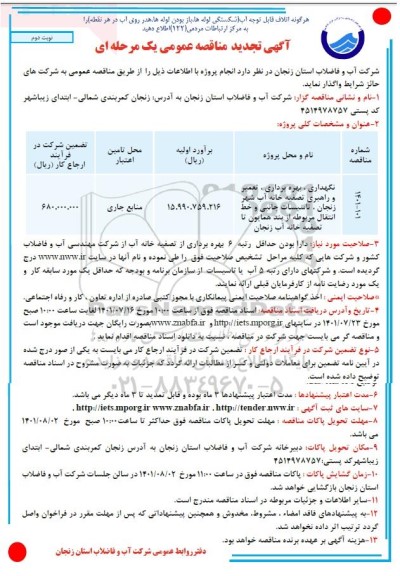 هرگونه اتلاف قابل توجه آب(شکستگی لوله ها،باز بودن لوله ها،هدر روی آب در هر نقطه)را
به مرکز ارتباطات مردمی(۱۲۲)اطلاع دهید
نوبت دوم
آگهی تجدید مناقصه عمومی یک مرحله ای
شرکت آب و فاضلاب استان زنجان در نظر دارد انجام پروژه با اطلاعات ذیل را از طریق مناقصه عمومی به شرکت های
حائز شرایط واگذار نماید.
۱-نام و نشانی مناقصه گزار: شرکت آب و فاضلاب استان زنجان به آدرس: زنجان کمربندی شمالی- ابتدای زیباشهر
کد پستی ۴۵۱۴۹۷۸۷۵۷
۲-عنوان و مشخصات کلی پروژه:
شماره مناقصه
نام و محل پروژه
برآورد اولیه (ریال)
محل تامین اعتبار
تضمین شرکت در فرآیند ارجاع کار (ریال)
نگهداری ، بهره برداری ، تعمیر
و راهبری تصفیه خانه آب شهر
زنجان ، تاسیسات جانبی و خط
انتقال مربوطه از بند همایون تا
تصفیه خانه آب زنجان
۱۵.۹۹۰.۷۵۹.۲۱۶
منابع جاری
۶۸۰.۰۰۰.۰۰۰
۳-صلاحیت مورد نیاز: دارا بودن حداقل رتبه ۶ بهره برداری از تصفیه خانه آب از شرکت مهندسی آب و فاضلاب
کشور و شرکت هایی که کلیه مراحل تشخیص صلاحیت فوق را طی نموده و نام آنها در سایت www.nww.ir درج
گردیده است. و شرکتهای دارای رتبه ۵ آب یا تاسیسات از سازمان برنامه و بودجه که حداقل یک مورد سابقه کار و
یک مورد رضایت نامه از کارفرمایان قبلی ارائه نمایند.
*صلاحیت ایمنی : اخذ گواهینامه صلاحیت ایمنی پیمانکاری یا مجوز کتبی صادره از اداره تعاون ، کار و رفاه اجتماعی.
۴-تاریخ وآدرس دریافت اسناد مناقصه: اسناد مناقصه فوق از ساعت ۱۰:۰۰ مورخ ۱۴۰۱/۰۷/۱۶ لغایت ساعت ۱۰:۰۰ صبح
مورخ ۱۴۰۱/۰۷/۲۳ در سایتهای http://iets.mporg.ir و www.znabfa.ir بصورت رایگان جهت دریافت موجود است
و مناقصه گر می بایست جهت شرکت در مناقصه ، نسبت به دانلود اسناد مناقصه اقدام نماید.
۵-نوع تضمین شرکت در فرآیند ارجاع کار : تضمین شرکت در فرآیند ارجاع کار می بایست به یکی از صور درج شده
در آیین نامه تضمین برای معاملات دولتی و کسر از مطالبات ارائه گردد که جزئیات به صورت مشروح در اسناد مناقصه
توضیح داده شده است.
۰۲۱-۸۸۳۴۹۶۷۰-۵
۶-مدت اعتبار پیشنهادها : مدت اعتبار پیشنهادها ۳ ماه بوده و قابل تمدید تا ۳ ماه دیگر می باشد.
۷-سایت های ثبت آگهی : http://iets.mporg.ir www.znabfa.ir , http://tender.nww.ir ,
۸-مهلت تحویل پاکات مناقصه : مهلت تحویل پاکات مناقصه فوق حداکثر تا ساعت ۱۰:۰۰ صبح مورخ ۱۴۰۱/۰۸/۰۲
می باشد.
۹-مکان تحویل پاکات: دبیرخانه شرکت آب و فاضلاب استان زنجان به آدرس زنجان کمربندی شمالی- ابتدای
زیباشهرکد پستی:۴۵۱۴۹۷۸۷۵۷
۱۰-زمان گشایش پاکات : پاکات مناقصه فوق در ساعت ۱۱:۰۰ مورخ ۱۴۰۱/۰۸/۰۲ در سالن جلسات شرکت آب و فاضلاب
استان زنجان بازگشایی خواهد شد.
۱۱-سایر اطلاعات و جزئیات مربوطه در اسناد مناقصه مندرج است.
۱۲-به پیشنهادهای فاقد امضاء ، مشروط، مخدوش و همچنین پیشنهاداتی که پس از مهلت مقرر در فراخوان واصل
گردد ترتیب اثر داده نخواهد شد.
۱۳-هزینه آگهی بر عهده برنده مناقصه خواهد بود.
دفتر روابط عمومی شرکت آب و فاضلاب استان زنجان